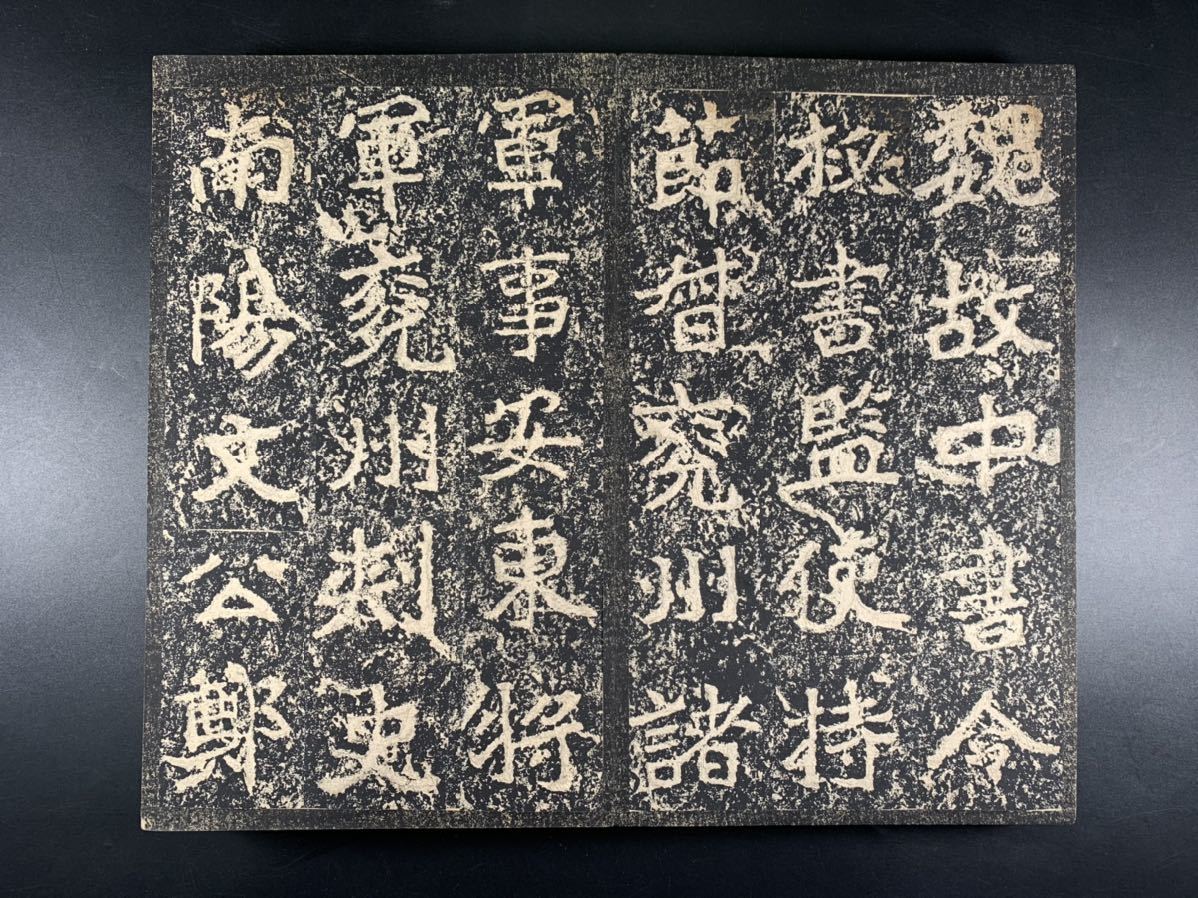 魏故中書令
秘書監使持
節督兗州諸
軍事安東將
軍兗州刺史
南陽文公鄭